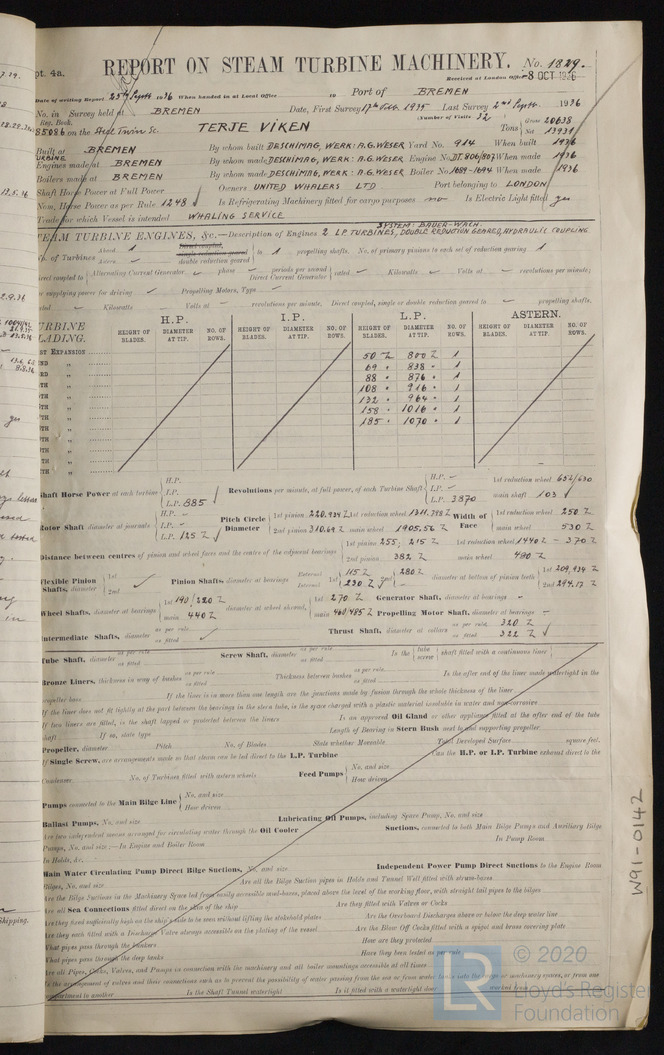 pt. 4a.
REPORT ON STEAM TURBINE MACHINERY. No. 1829.
Received at London Office -8 OCT 1936
Date of writing Report 25th Sept. 1936 When handed in at Local Office 19 Port of BREMEN
No. in Survey held at BREMEN Date, First Survey 17th Feb. 1935 Last Survey 2nd Sept. 1936
Reg. Book. (Number of Visits 32)
85086 on the Steel Twin Sc. TERJE VIKEN Tons Gross 20638 Net 13931
Built at BREMEN By whom built DESCHIMAG, WERK: A.G. WESER Yard No. 914 When built 1936
Engines made at BREMEN By whom made DESCHIMAG, WERK: A.G. WESER Engine No. DT. 806/807 When made 1936
Boilers made at BREMEN By whom made DESCHIMAG, WERK: A.G. WESER Boiler No. 1689-1694 When made 1936
Shaft Horse Power at Full Power Owners UNITED WHALERS LTD Port belonging to LONDON
Nom. Horse Power as per Rule 1248 Is Refrigerating Machinery fitted for cargo purposes no Is Electric Light fitted yes
Trade for which Vessel is intended WHALING SERVICE
SYSTEM: BAUER-WACH.
STEAM TURBINE ENGINES, &c.—Description of Engines 2 L.P. TURBINES, DOUBLE REDUCTION GEARED, HYDRAULIC COUPLING
No. of Turbines Ahead 1 Astern direct coupled, single reduction geared double reduction geared to 1 propelling shafts. No. of primary pinions to each set of reduction gearing 1
direct coupled to Alternating Current Generator phase periods per second Direct Current Generator rated Kilowatts Volts at revolutions per minute;
for supplying power for driving Propelling Motors, Type
rated Kilowatts Volts at revolutions per minute. Direct coupled, single or double reduction geared to propelling shafts.
TURBINE BLADING. H.P. I.P. L.P. ASTERN.
HEIGHT OF BLADES. DIAMETER AT TIP. NO. OF ROWS. HEIGHT OF BLADES. DIAMETER AT TIP. NO. OF ROWS. HEIGHT OF BLADES. DIAMETER AT TIP. NO. OF ROWS. HEIGHT OF BLADES. DIAMETER AT TIP. NO. OF ROWS.
1ST EXPANSION 50 800 1
69 838 1
88 876 1
108 916 1
132 964 1
158 1016 1
185 1070 1
Shaft Horse Power at each turbine H.P. I.P. L.P. 885 Revolutions per minute, at full power, of each Turbine Shaft H.P. I.P. L.P. 3870 1st reduction wheel 652/630 main shaft 103
Rotor Shaft diameter at journals H.P. I.P. L.P. 125 Pitch Circle Diameter 1st pinion 220.939 1st reduction wheel 1311.792 Width of Face 1st reduction wheel 250
2nd pinion 310.69 main wheel 1905.56 main wheel 530
Distance between centres of pinion and wheel faces and the centre of the adjacent bearings 1st pinion 255; 215 1st reduction wheel 1440 - 370
2nd pinion 382 main wheel 480
Flexible Pinion Shafts, diameter 1st 2nd Pinion Shafts, diameter at bearings External 115 Internal 230 2nd 280 diameter at bottom of pinion teeth 1st 209,934 2nd 294.17
Wheel Shafts, diameter at bearings 1st 190/220 main 440 diameter at wheel shroud, 1st 270 main 460/485 Generator Shaft, diameter at bearings
Propelling Motor Shaft, diameter at bearings
Intermediate Shafts, diameter as per rule as fitted Thrust Shaft, diameter at collars as per rule 320 as fitted 322
Tube Shaft, diameter as per rule as fitted Screw Shaft, diameter as per rule as fitted Is the tube screw shaft fitted with a continuous liner
Bronze Liners, thickness in way of bushes as per rule as fitted Thickness between bushes as per rule as fitted Is the after end of the liner made watertight in the
propeller boss If the liner is in more than one length are the junctions made by fusion through the whole thickness of the liner
If the liner does not fit tightly at the part between the bearings in the stern tube, is the space charged with a plastic material insoluble in water and non-corrosive
If two liners are fitted, is the shaft lapped or protected between the liners Is an approved Oil Gland or other appliance fitted at the after end of the tube
shaft If so, state type Length of Bearing in Stern Bush next to and supporting propeller
Propeller, diameter Pitch No. of Blades State whether Moveable Total Developed Surface square feet.
If Single Screw, are arrangements made so that steam can be led direct to the L.P. Turbine Can the H.P. or I.P. Turbine exhaust direct to the
Condenser No. of Turbines fitted with astern wheels Feed Pumps No. and size How driven
Pumps connected to the Main Bilge Line No. and size How driven
Ballast Pumps, No. and size Lubricating Oil Pumps, including Spare Pump, No. and size
Are two independent means arranged for circulating water through the Oil Cooler Suctions, connected to both Main Bilge Pumps and Auxiliary Bilge
Pumps, No. and size:—In Engine and Boiler Room In Pump Room
In Holds, &c.
Main Water Circulating Pump Direct Bilge Suctions, No. and size Independent Power Pump Direct Suctions to the Engine Room
Bilges, No. and size Are all the Bilge Suction pipes in Holds and Tunnel Well fitted with strum-boxes
Are the Bilge Suctions in the Machinery Space led from easily accessible mud-boxes, placed above the level of the working floor, with straight tail pipes to the bilges
Are all Sea Connections fitted direct on the skin of the ship Are they fitted with Valves or Cocks
Are they fixed sufficiently high on the ship's side to be seen without lifting the stokehold plates Are the Overboard Discharges above or below the deep water line
Are they each fitted with a Discharge Valve always accessible on the plating of the vessel Are the Blow Off Cocks fitted with a spigot and brass covering plate
What pipes pass through the bunkers How are they protected
What pipes pass through the deep tanks Have they been tested as per rule
Are all Pipes, Cocks, Valves, and Pumps in connection with the machinery and all boiler mountings accessible at all times
Is the arrangement of valves and their connections such as to prevent the possibility of water passing from the sea or from water tanks into the cargo or machinery spaces, or from one
compartment to another Is the Shaft Tunnel watertight Is it fitted with a watertight door worked from
W91-0142
© 2020
LR
Lloyd's Register
Foundation